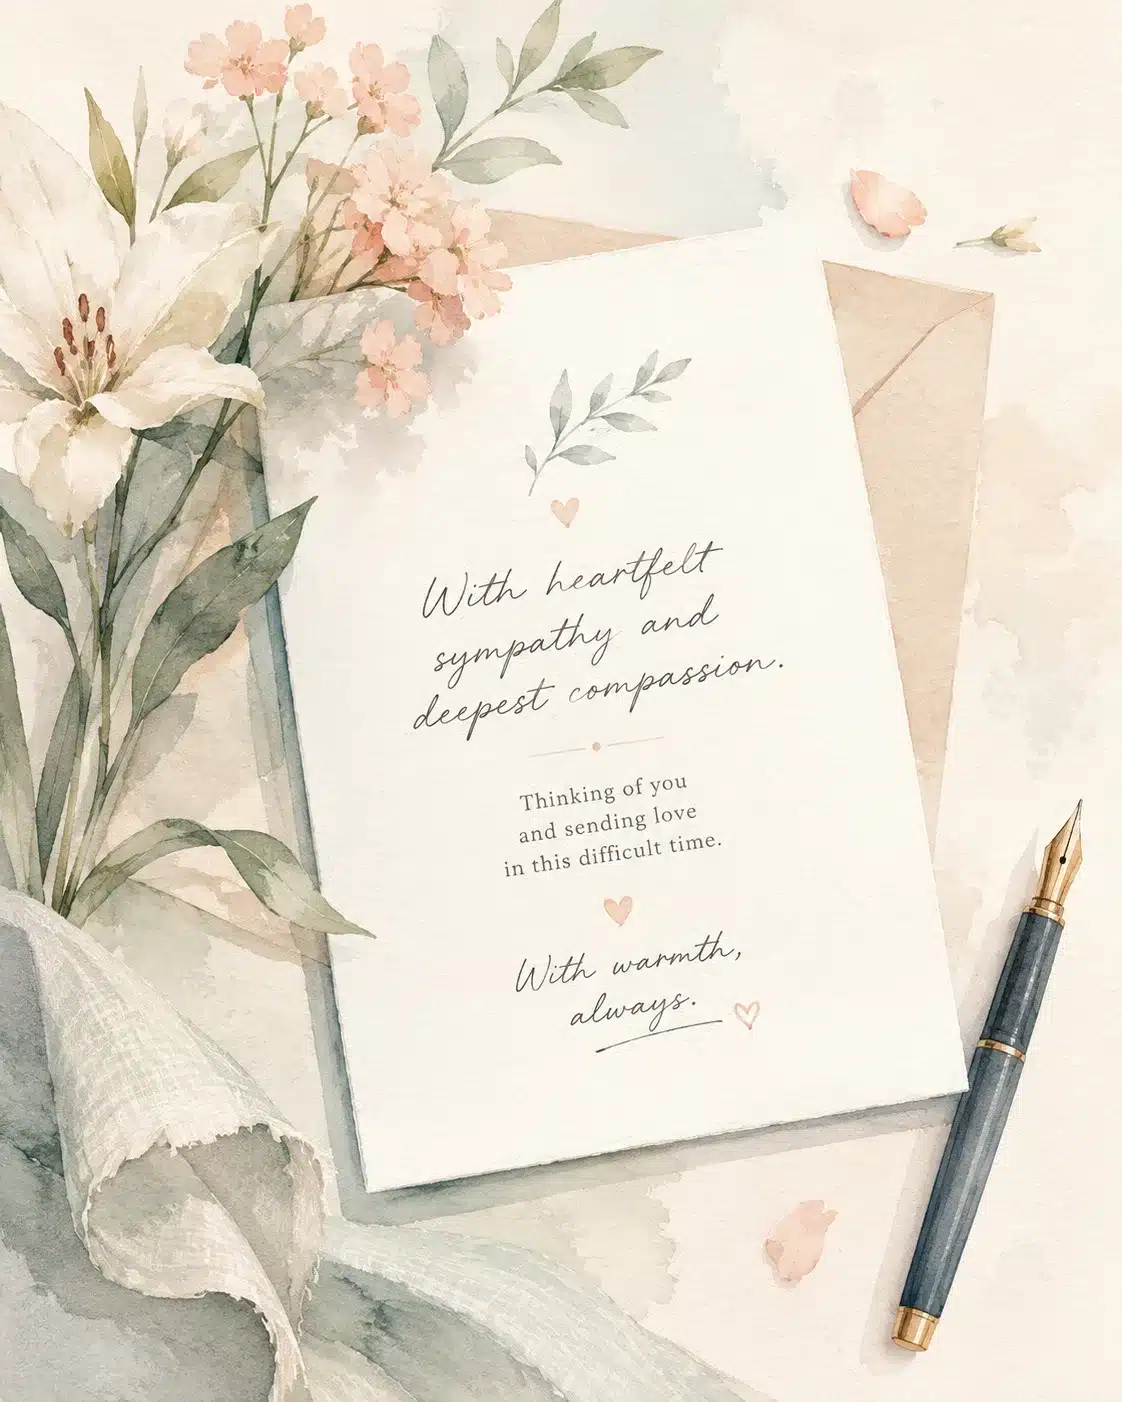 With heartfelt
sympathy and
deepest compassion.
Thinking of you
and sending love
in this difficult time.
With warmth,
always.